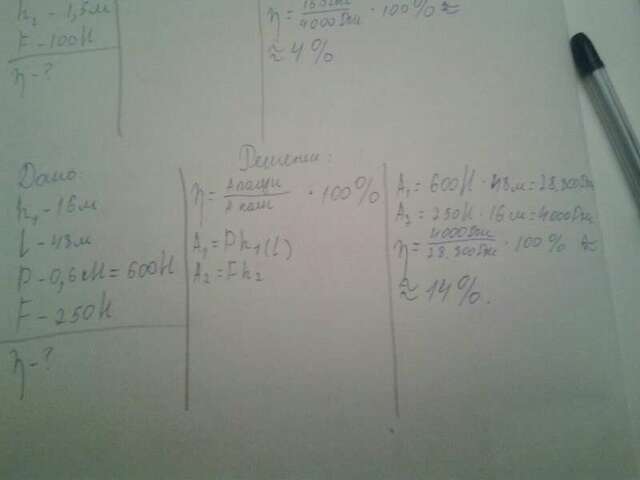 h₂ - 1,5м
F - 100Н
η - ?
4000Дж · 100% ≈
≈ 4%
Дано:
h₁ - 16м
l - 48м
P - 0,6кН = 600Н
F - 250Н
η - ?
Решение:
η = Aполн / Aзат · 100%
A₁ = Ph₁(l)
A₂ = Fh₂
A₁ = 600Н · 48м = 28,800Дж
A₂ = 250Н · 16м = 4000Дж
η = 4000Дж / 28,800Дж · 100% ≈
≈ 14%.